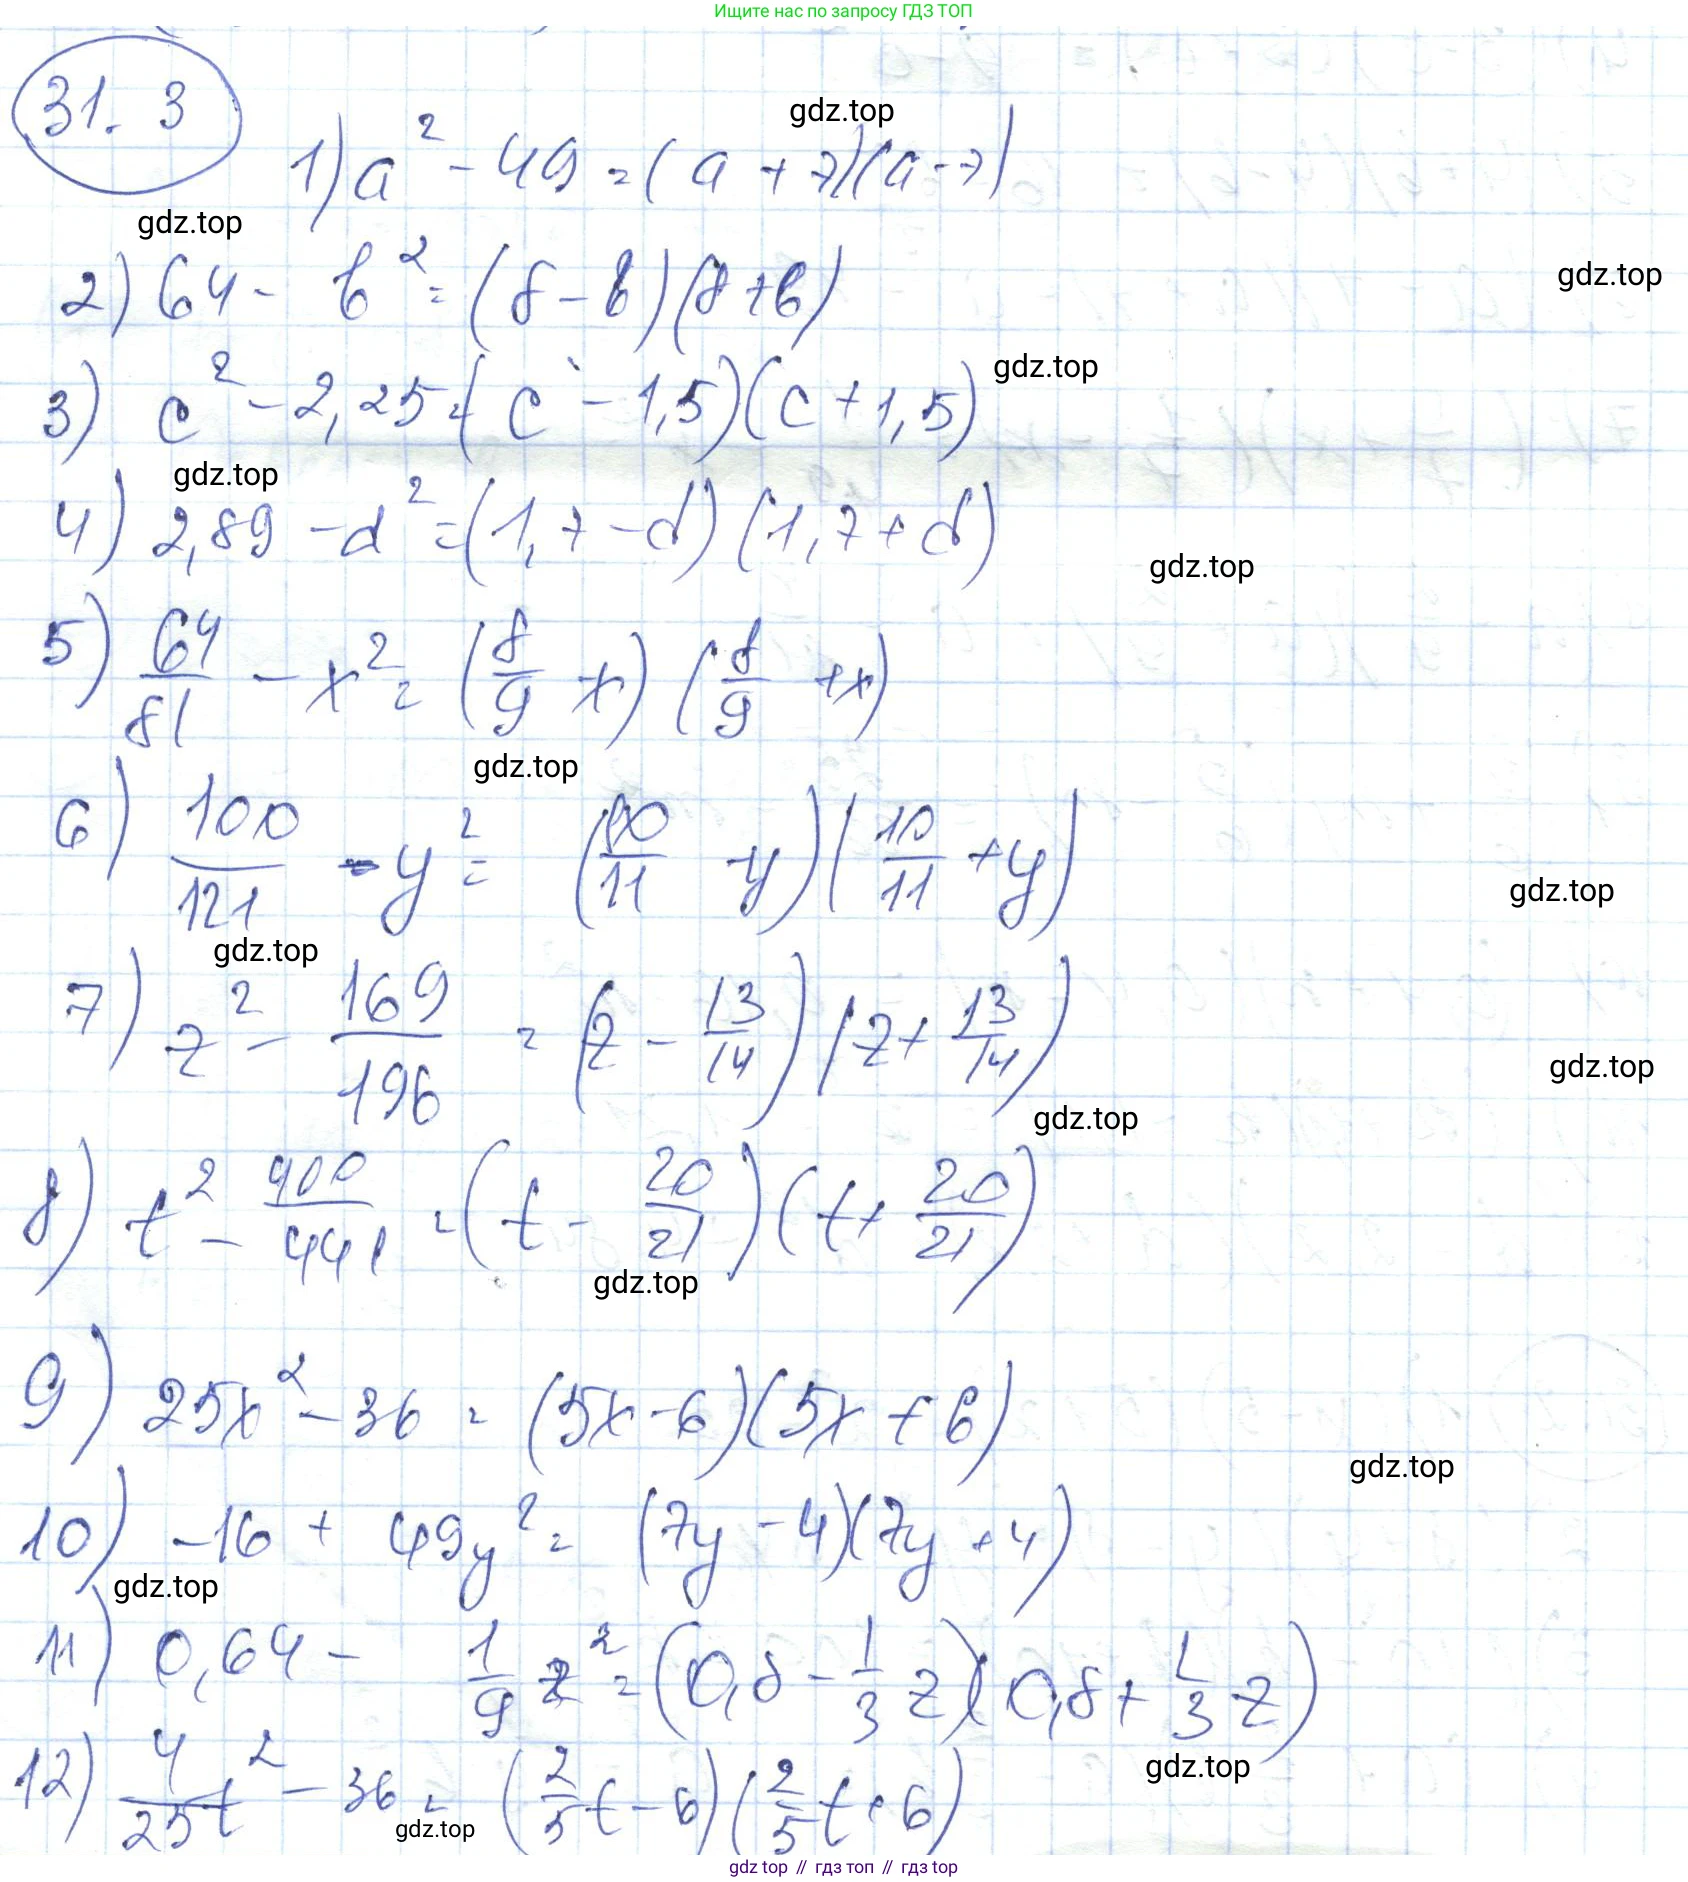 Ищите нас по запросу ГДЗ ТОП
31. 3
gdz.top
1) a² - 49 = (a + 7)(a - 7)
gdz.top
gdz.top
2) 64 - b² = (8 - b)(8 + b)
gdz.top
3) c² - 2,25 = (c - 1,5)(c + 1,5)
gdz.top
4) 2,89 - d² = (1,7 - d)(1,7 + d)
gdz.top
5) 64/81 - x² = (8/9 - x)(8/9 + x)
gdz.top
6) 100/121 - y² = (10/11 - y)(10/11 + y)
gdz.top
gdz.top
7) z² - 169/196 = (z - 13/14)(z + 13/14)
gdz.top
gdz.top
8) t² - 400/441 = (t - 20/21)(t + 20/21)
gdz.top
9) 25x² - 36 = (5x - 6)(5x + 6)
gdz.top
10) -16 + 49y² = (7y - 4)(7y + 4)
gdz.top
11) 0,64 - 1/9 z² = (0,8 - 1/3 z)(0,8 + 1/3 z)
gdz.top
12) 4/25 t² - 36 = (2/5 t - 6)(2/5 t + 6)
gdz.top
gdz top // гдз топ // гдз top